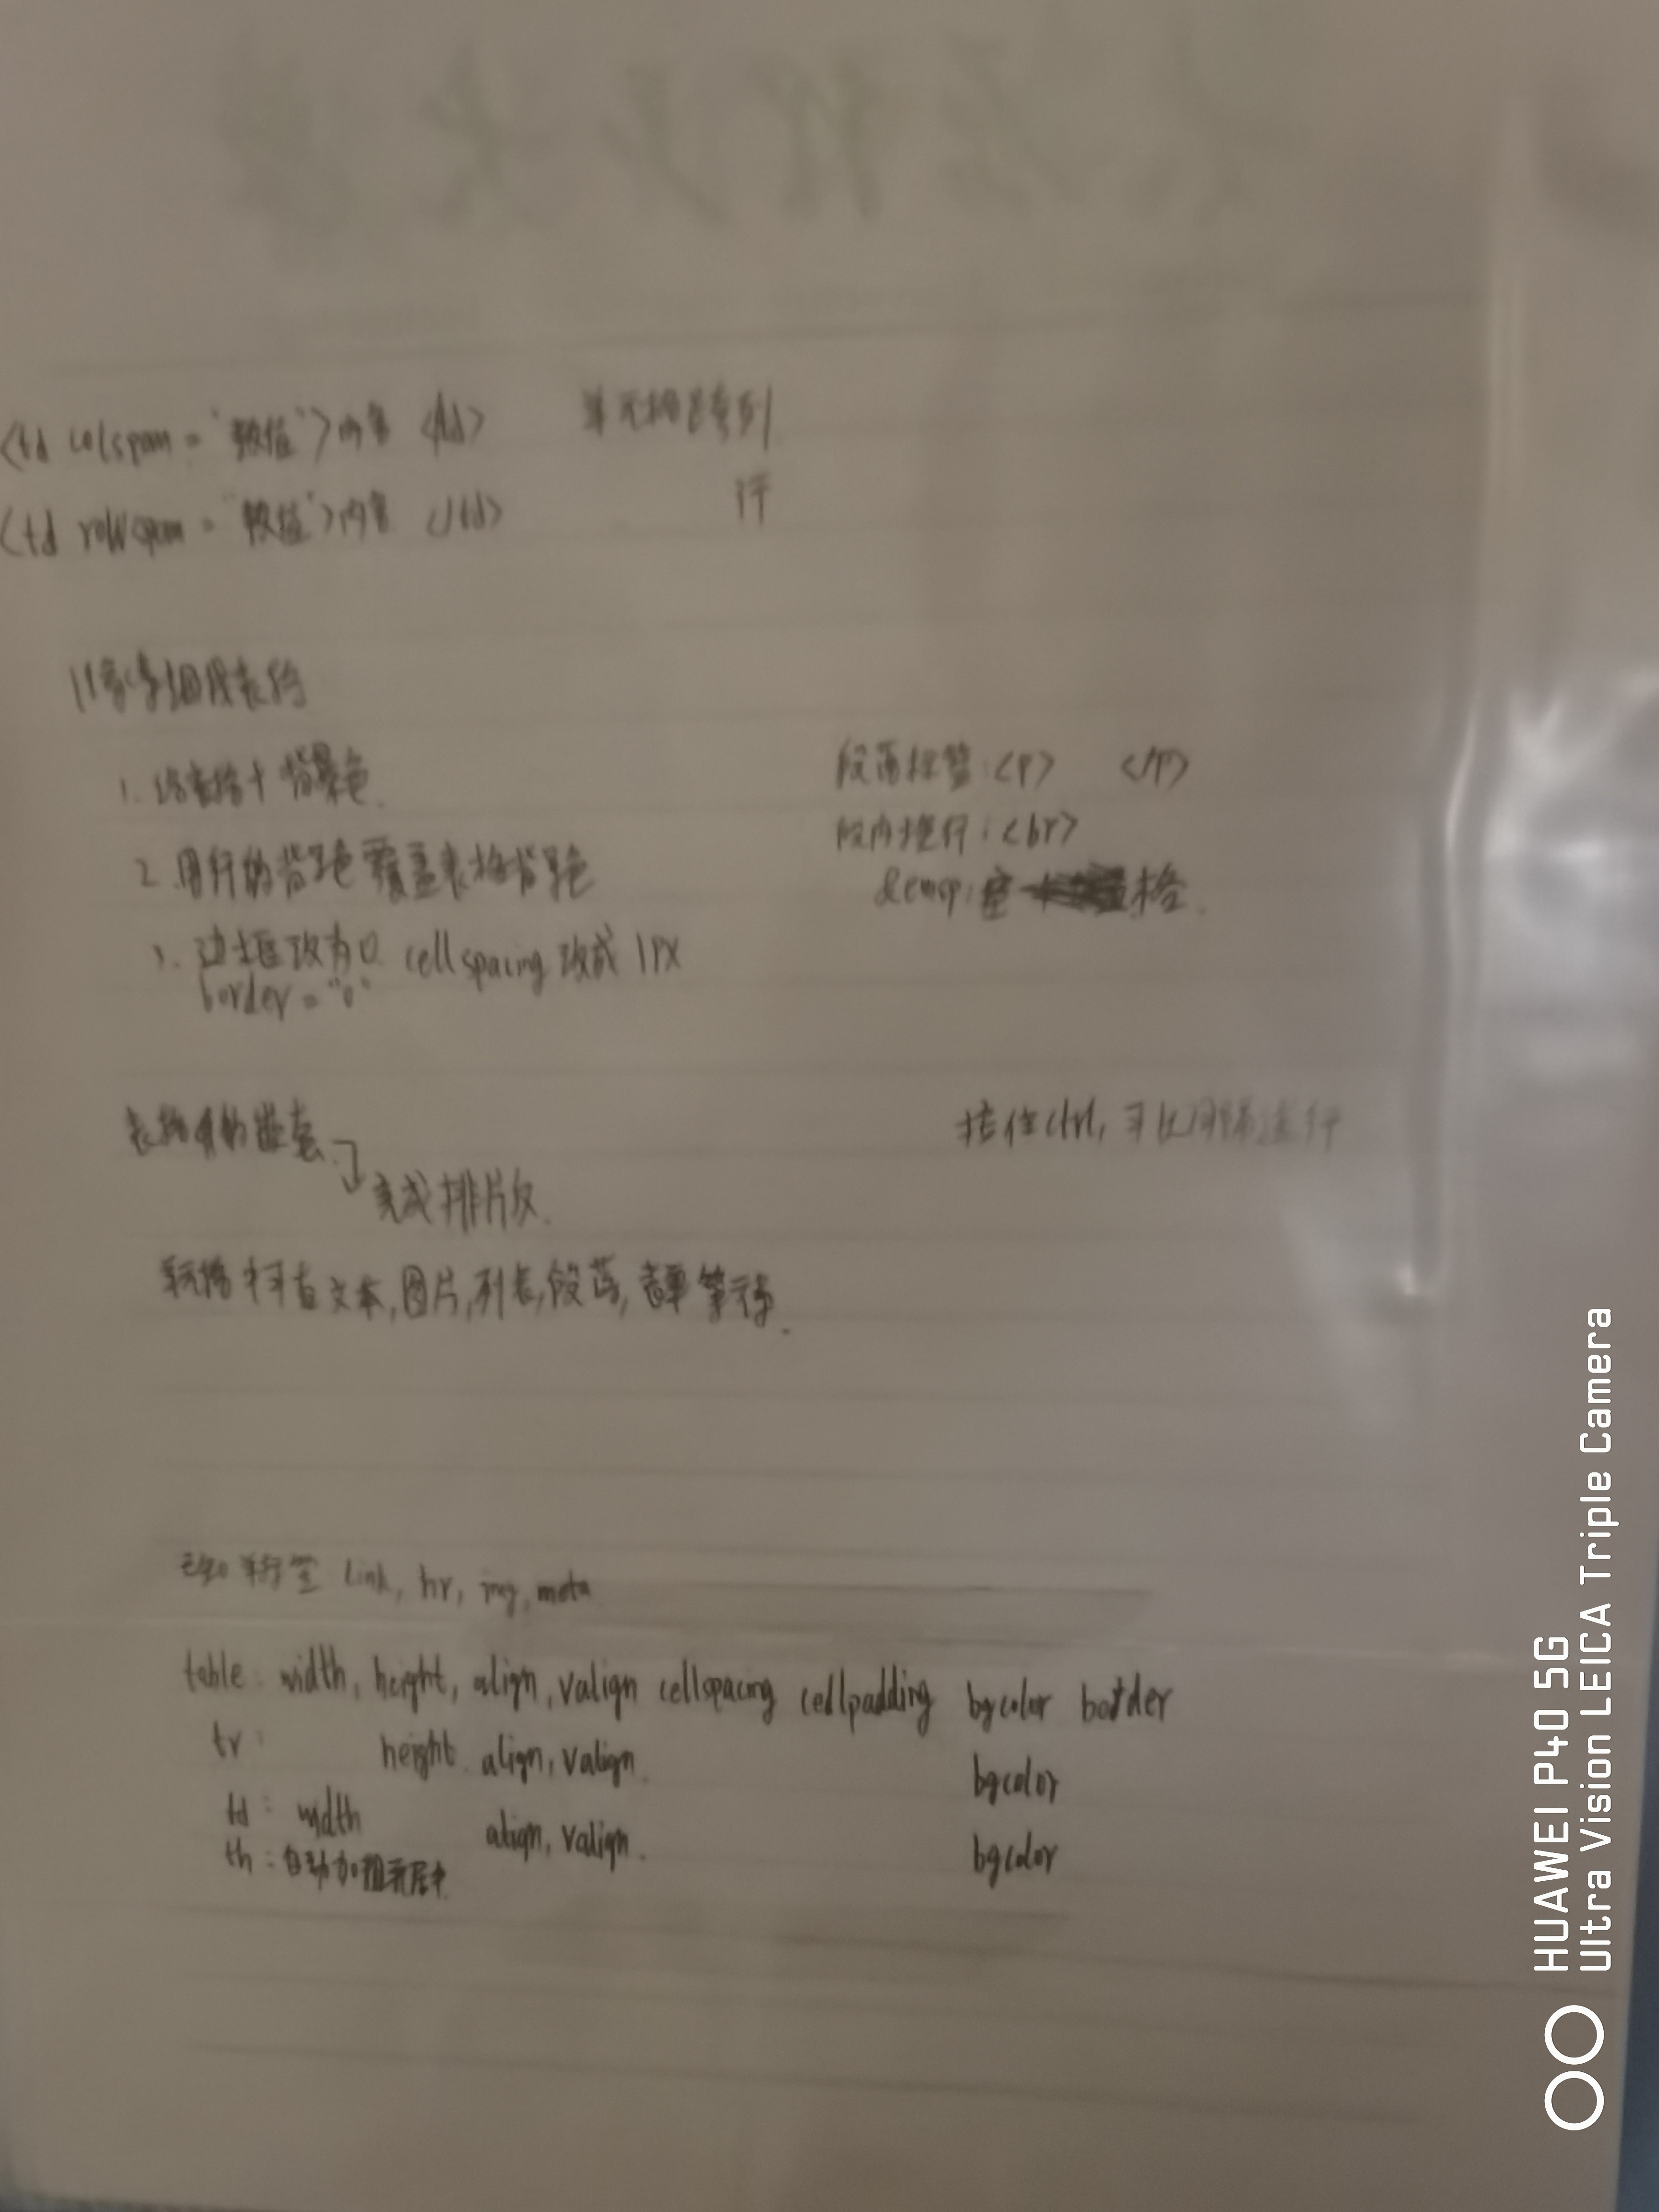 <td colspan="数值">内容 </td> 单元格跨列
<td rowspan="数值">内容 </td> 行
表格
1. 给表格+背景色.
2. 用行的背景色覆盖表格背景色
3. 边框改为0. cellspacing 改成 1PX
border="0"
段落标签:<P> </P>
段内换行:<br>
&emsp;空格.
表格的嵌套
完成排版.
按住ctrl,可以
文本,图片,列表,段落,表单等
标签 link, hr, img, meta
table: width, height, align, valign cellspacing cellpadding bgcolor border
tr: height. align, valign. bgcolor
td: width align, valign. bgcolor
th:自动加粗居中.
HUAWEI P40 5G
Ultra Vision LEICA Triple Camera